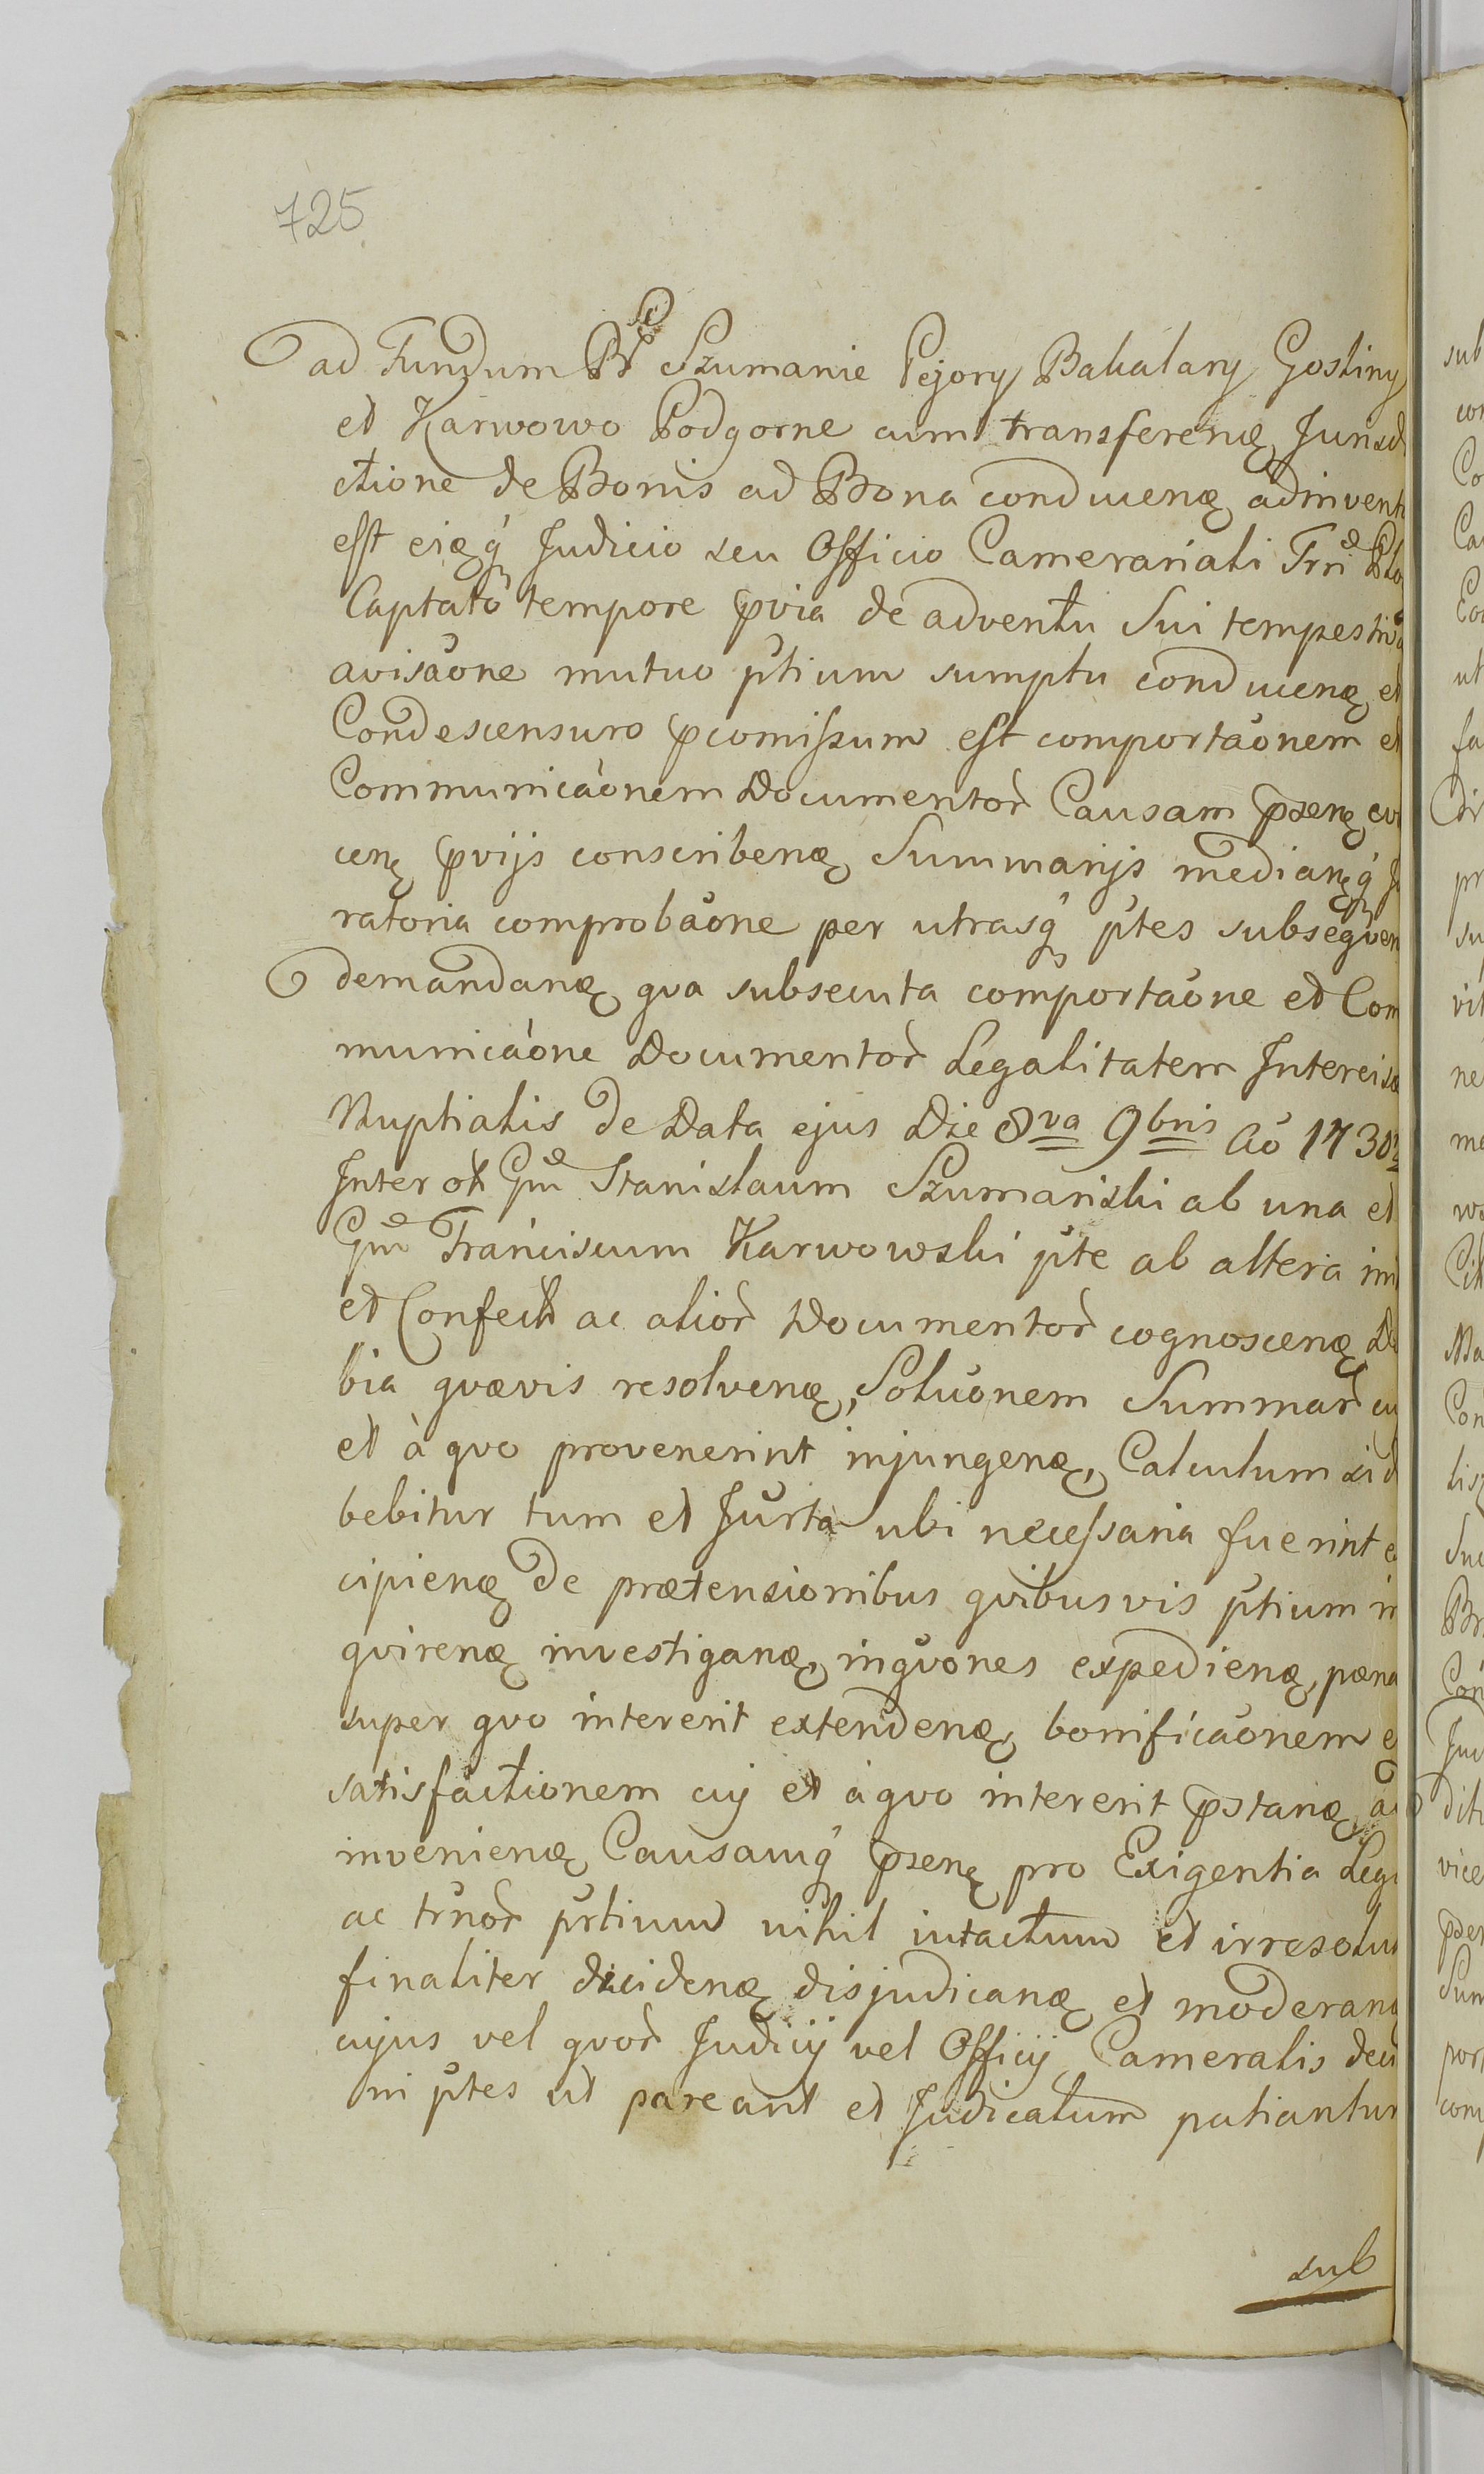 725
ad Fundum Br̃ Szumanie Pejory Bakalary Gostiny
et Karwowo Podgorne cum transferenę Jurisd
ctione de Bonis ad Bona conducenę adinvent
est eięq́ Judicio seu Officio Camerariali Trr̃i Plo
Captato tempore p̃via de adventu Sui tempestiva
avisaõne mutuo p̃tium sumptu conducenę et
Condescensuro p̃comissum est comportaõnem et
Communicaõnem Documentor̃ Causam p̃senę
cenę p̃vijs conscribenę Summarijs medianęq́
ratoria comprobaõne per utrasq́ p̃tes subseqven
demandanę qva subsecuta comportaõne et Com
municaõne Documentor̃ Legalitatem Intercisæ
Nuptialis de Data ejus Die 8va 9bris Aõ 1730
Inter Gm̃ Stanislaum Szumański ab una et
Gm̃ Franciscum Karwowski p̃te ab altera
et Confect ac alior̃ Documentor̃ cognoscenę Du
bia qvævis resolvenę, Soluõnem Summar̃ cu
et à qvo provenerint injungenę, Calculum si d
bebitur tum et Jurta ubi necessaria fuerint e
cipienę de prætensionibus qvibusvis p̃tium in
qvirenę investiganę, inqvõnes expedienę, pæna
super qvo intererit extendenę, bonificaõnem e
satisfactionem cuj et àqvo intererit p̃stanę, a
invenienę Causamq́ p̃senę pro Exigentia Leg
ac tr̃nor̃ p̃rtium nihil intactum et irresolut
finaliter dicidenę disjudicanę et moderanę
cujus vel qvor̃ Judicij vel Officij Cameralis decr
ni p̃tes ut pareant et Judicatum patiantur
sub